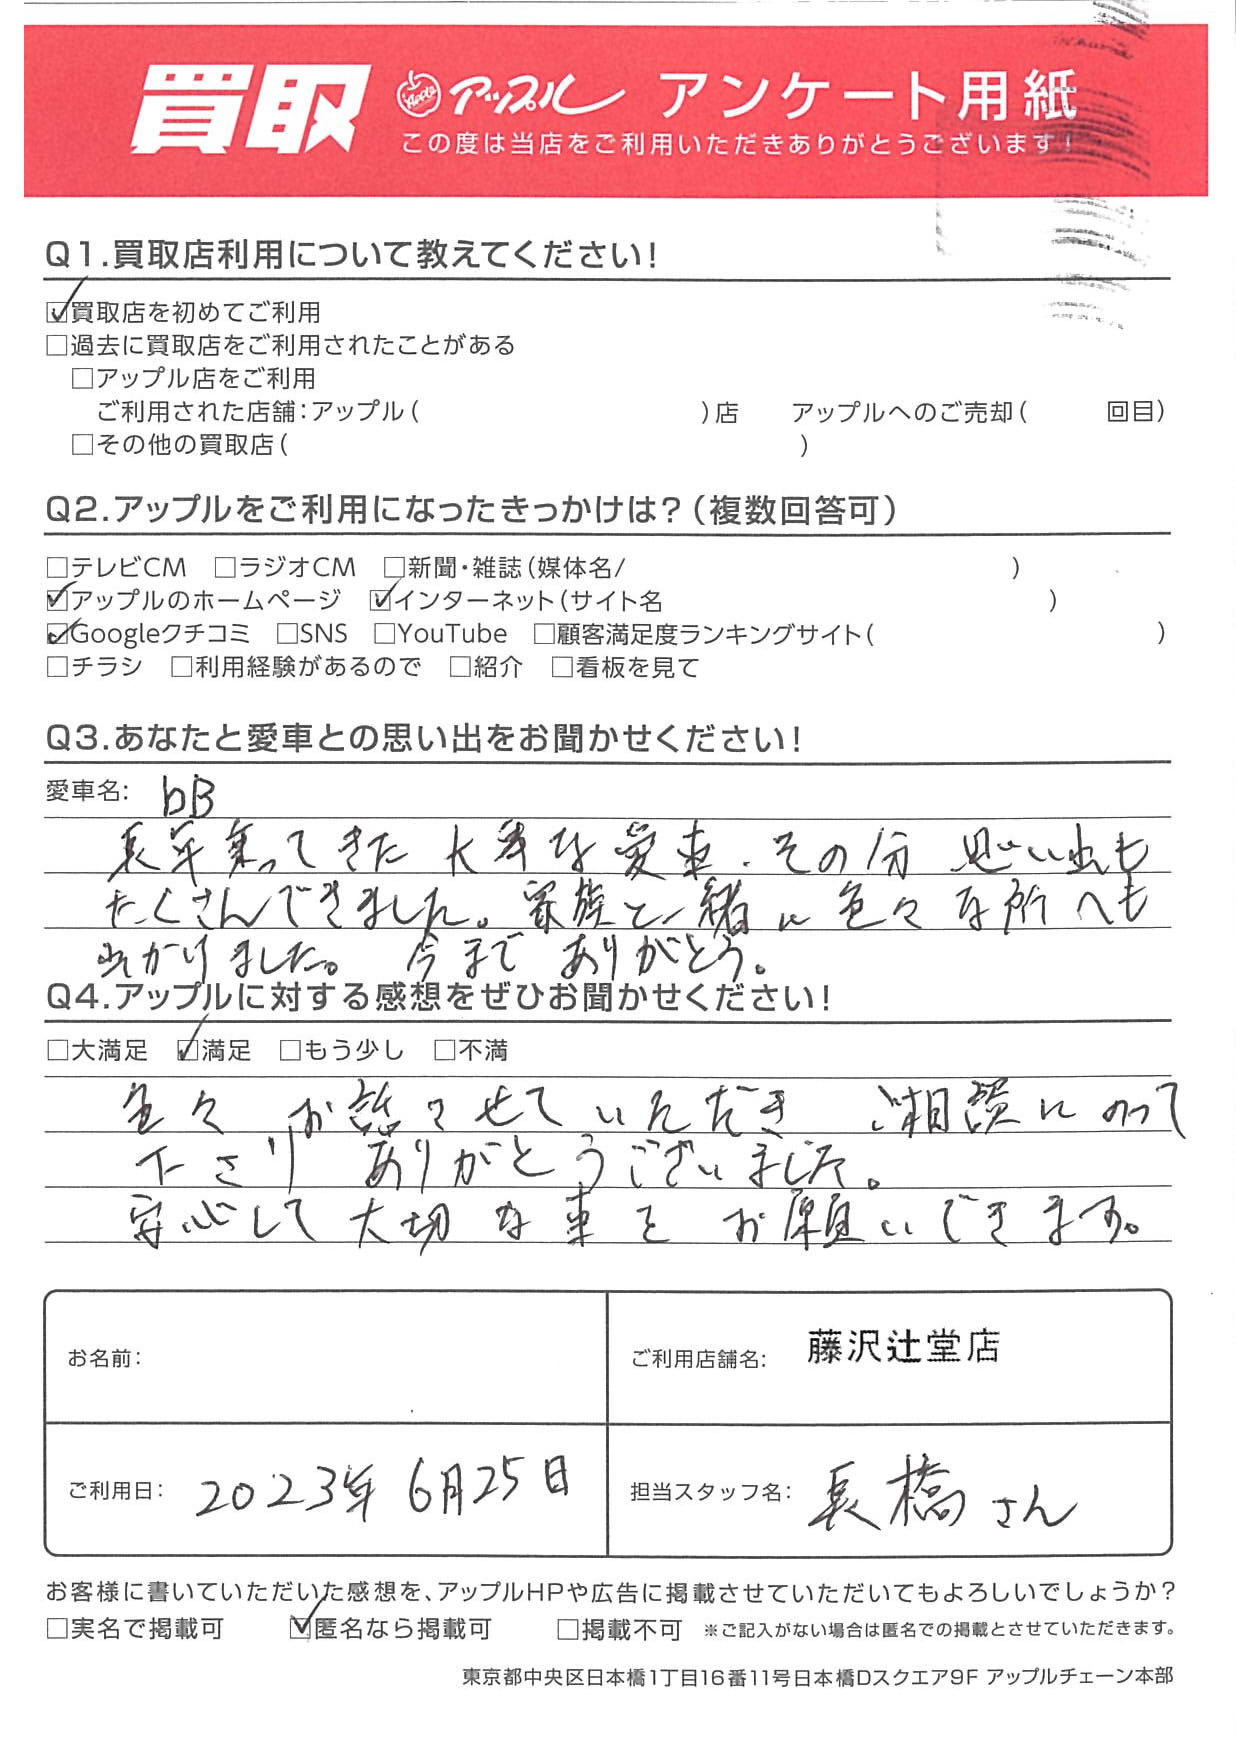 買取 Apple アップル アンケート用紙
この度は当店をご利用いただきありがとうございます!
Q1.買取店利用について教えてください!
☑買取店を初めてご利用
□過去に買取店をご利用されたことがある
□アップル店をご利用
ご利用された店舗:アップル( )店 アップルへのご売却( 回目)
□その他の買取店( )
Q2.アップルをご利用になったきっかけは?(複数回答可)
□テレビCM □ラジオCM □新聞・雑誌(媒体名/ )
☑アップルのホームページ ☑インターネット(サイト名 )
☑Googleクチコミ □SNS □YouTube □顧客満足度ランキングサイト( )
□チラシ □利用経験があるので □紹介 □看板を見て
Q3.あなたと愛車との思い出をお聞かせください!
愛車名: bB
長年乗ってきた大事な愛車.その分 思い出も
たくさんできました。家族と一緒に色々な所へも
出かけました。 今まで ありがとう。
Q4.アップルに対する感想をぜひお聞かせください!
□大満足 ☑満足 □もう少し □不満
色々 お話させていただき ご相談にのって
下さり ありがとうございました。
安心して大切な車をお願いできます。
お名前:
ご利用店舗名: 藤沢辻堂店
ご利用日: 2023年6月25日
担当スタッフ名: 長橋さん
お客様に書いていただいた感想を、アップルHPや広告に掲載させていただいてもよろしいでしょうか?
□実名で掲載可 ☑匿名なら掲載可 □掲載不可 ※ご記入がない場合は匿名での掲載とさせていただきます。
東京都中央区日本橋1丁目16番11号日本橋Dスクエア9F アップルチェーン本部